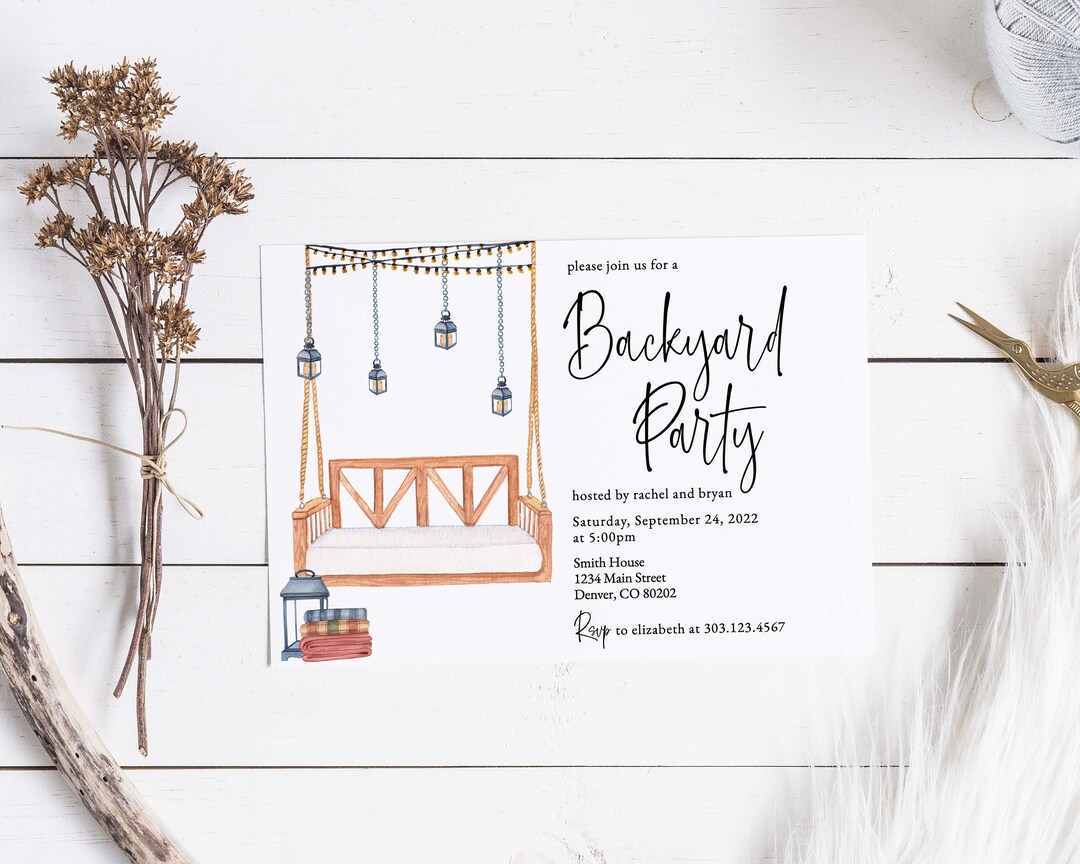 please join us for a
Backyard
Party
hosted by rachel and bryan
Saturday, September 24, 2022
at 5:00pm
Smith House
1234 Main Street
Denver, CO 80202
Rsvp to elizabeth at 303.123.4567